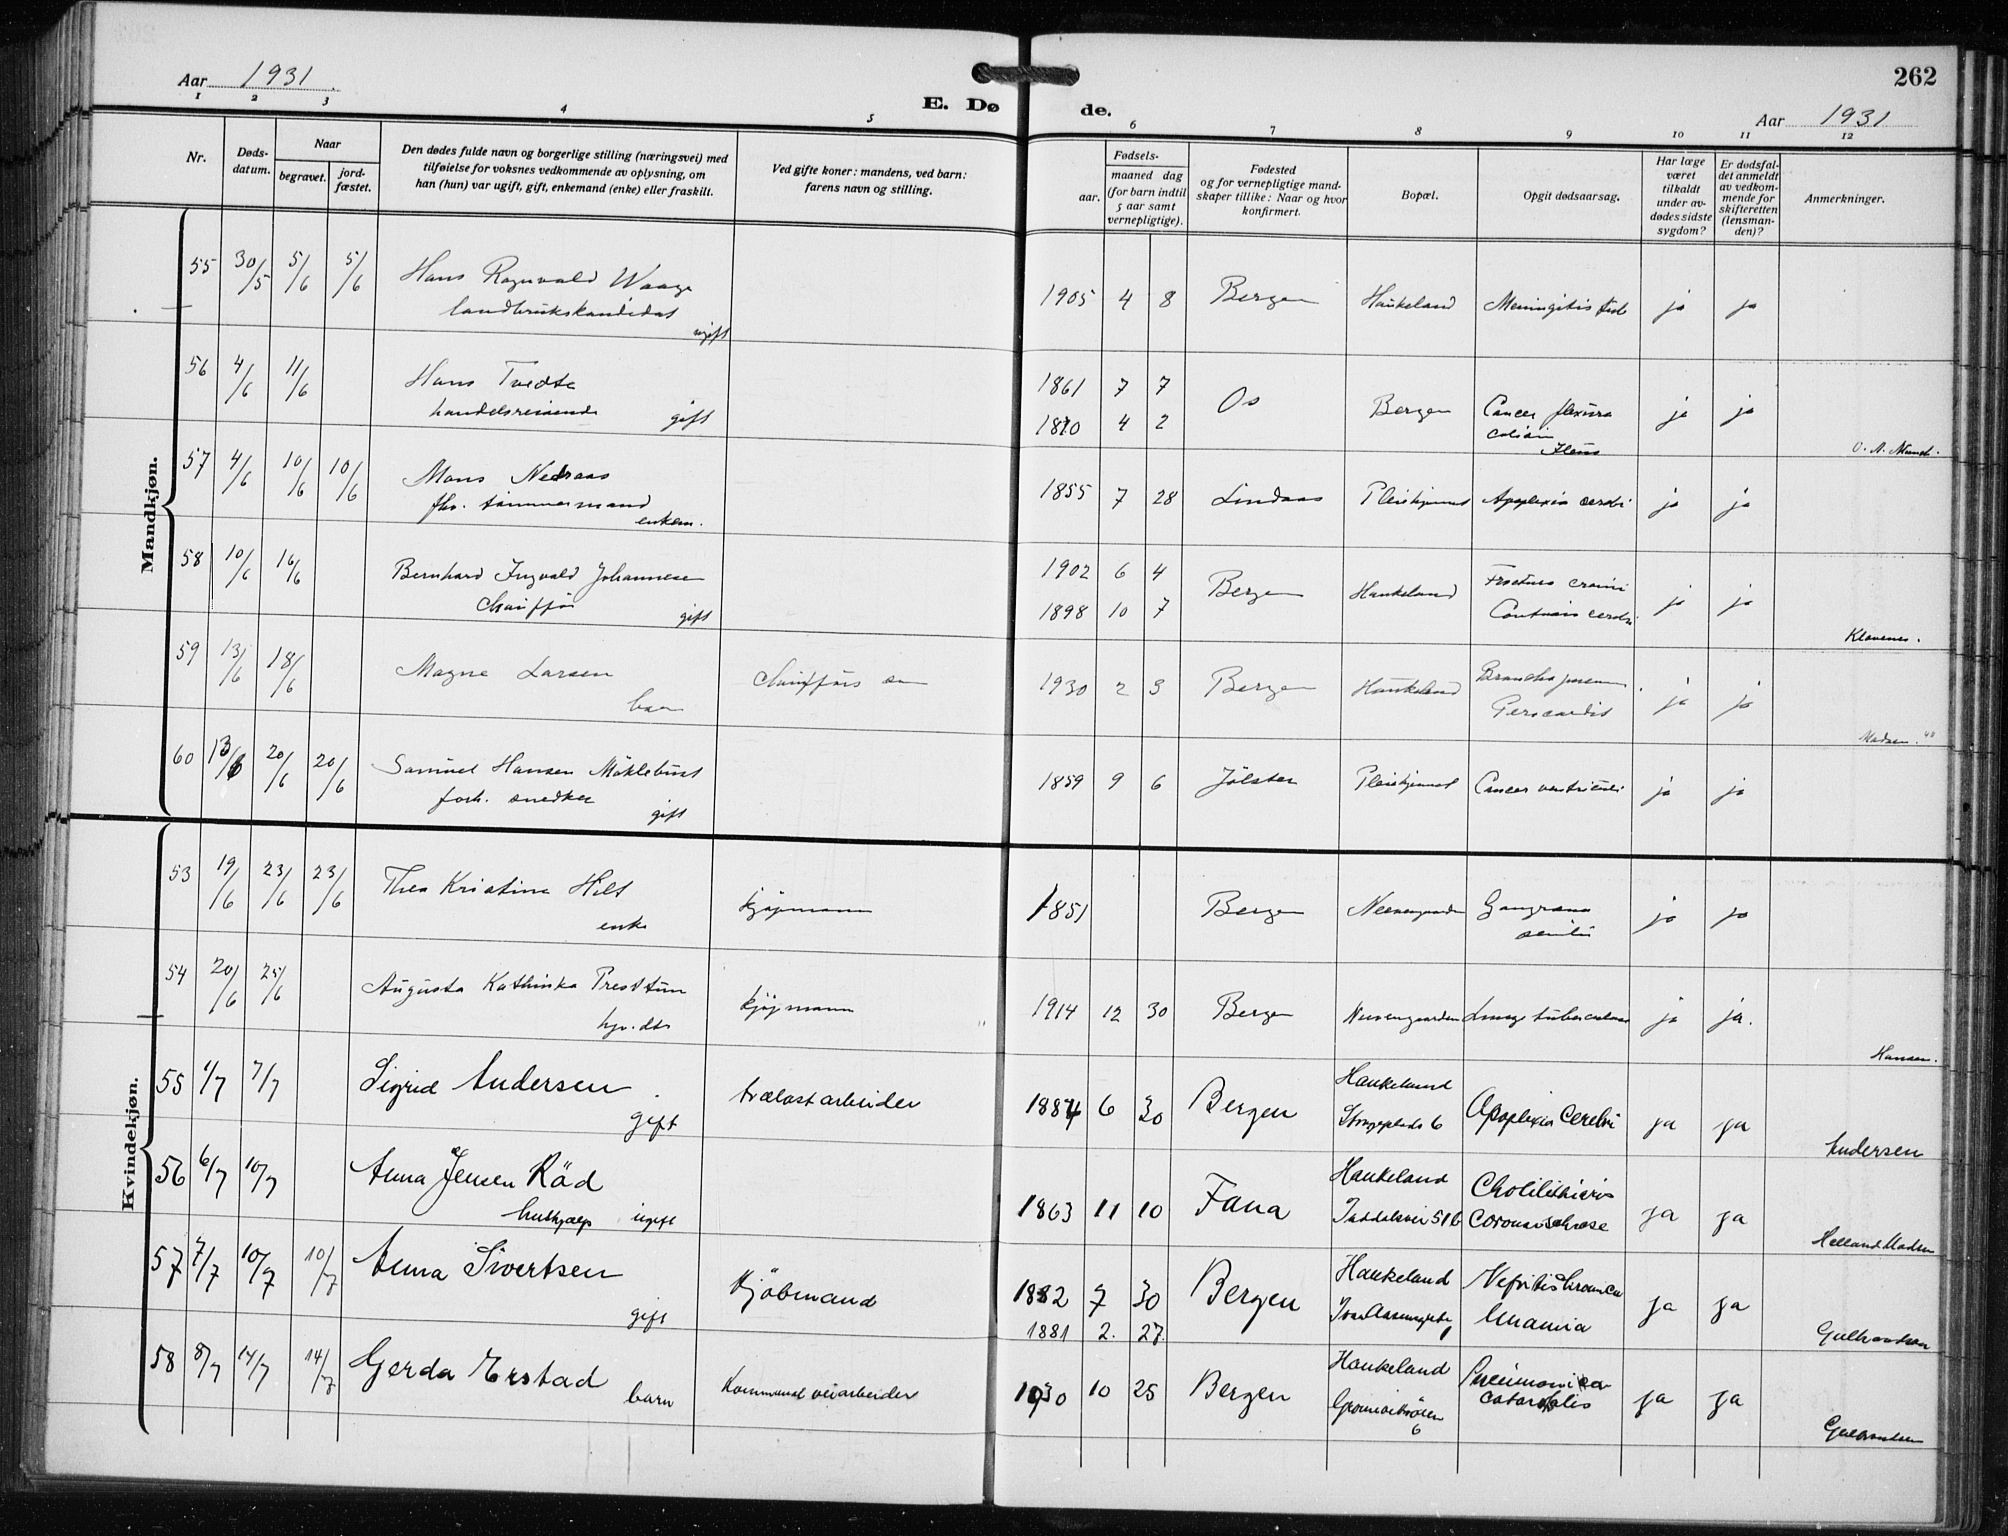 262
Aar 1931
Aar 1931
E. Døde.
1 2 3 4 5 6 7 8 9 10 11 12
Nr.
Døds-datum.
Naar
begravet.
jord-fæstet.
Den dødes fulde navn og borgerlige stilling (næringsvei) med
tilføielse for voksnes vedkommende av oplysning, om
han (hun) var ugift, gift, enkemand (enke) eller fraskilt.
Ved gifte koner: mandens, ved barn:
farens navn og stilling.
Fødsels-
aar.
maaned dag
(for barn indtil
5 aar samt
vernepligtige).
Fødested
og for vernepligtige mand-
skaper tillike: Naar og hvor
konfirmert.
Bopæl.
Opgit dødsaarsag.
Har læge
været
tilkaldt
under av-
dødes sidste
sygdom?
Er dødsfal-
det anmeldt
av vedkom-
mende for
skifteretten
(lensman-
den)?
Anmerkninger.
Mandkjøn.
55 30/5 5/6 5/6 Hans Ragnvald Waage 1905 4 8 Bergen Haukeland Meningitis tub ja ja
landbrukskandidat
ugift
56 4/6 11/6 Hans Tvedte 1861 7 7 Os Bergen Cancer flexura ja ja
handelsreisende gift 1870 4 2
Ileus
57 4/6 10/6 10/6 Mons Nedraas 1855 7 28 Lindaas Pleiehjemmet Apoplexia cerebri ja ja
fhv. tømmermand
enkem.
58 10/6 16/6 Bernhard Ingvald Johannesen 1902 6 4 Bergen Haukeland Fractura cranii ja ja
Chauffør gift 1898 10 7 Contusio cerebri
Klovenes.
59 13/6 18/6 Magne Larsen Chaufførs søn 1930 2 3 Bergen Haukeland ja ja
barn Pericardit
Madsen.
60 13/6 20/6 20/6 Samuel Hansen Myklebust 1859 9 6 Jølster Pleiehjemmet Cancer ventriculi ja ja
forh. snedker
gift
Kvindekjøn.
53 19/6 23/6 23/6 Thea Kristine Hilt kjøpmann 1851 Bergen Neevengaarden Gangræna ja ja
enke senilis
54 20/6 25/6 Augusta Kathinka Presttun kjøpmann 1914 12 30 Bergen Neevengaarden Lungetuberculose ja ja.
hjv. dtr
Hansen.
55 1/7 7/7 Sigrid Andersen trælastarbeider 1884 6 30 Bergen Haukeland Apoplexia Cerebri ja ja
gift
Andersen
56 6/7 10/7 Anna Jensen Råd 1863 11 10 Fana Haukeland ja ja
hushjælp ugift
Helland Madsen
57 7/7 10/7 10/7 Anna Sivertsen Kjøbmand 1882 7 30 Bergen Haukeland Nefritis chronica ja ja
gift 1881 2. 27. Ivar Aasensgate 1 Uræmia
Gulbrandsen
58 8/7 14/7 14/7 Gerda Erstad Kommunal veiarbeider 1930 10 25 Bergen Haukeland Pneumonica ja ja
barn 6 catarrhalis
Gulbrandsen